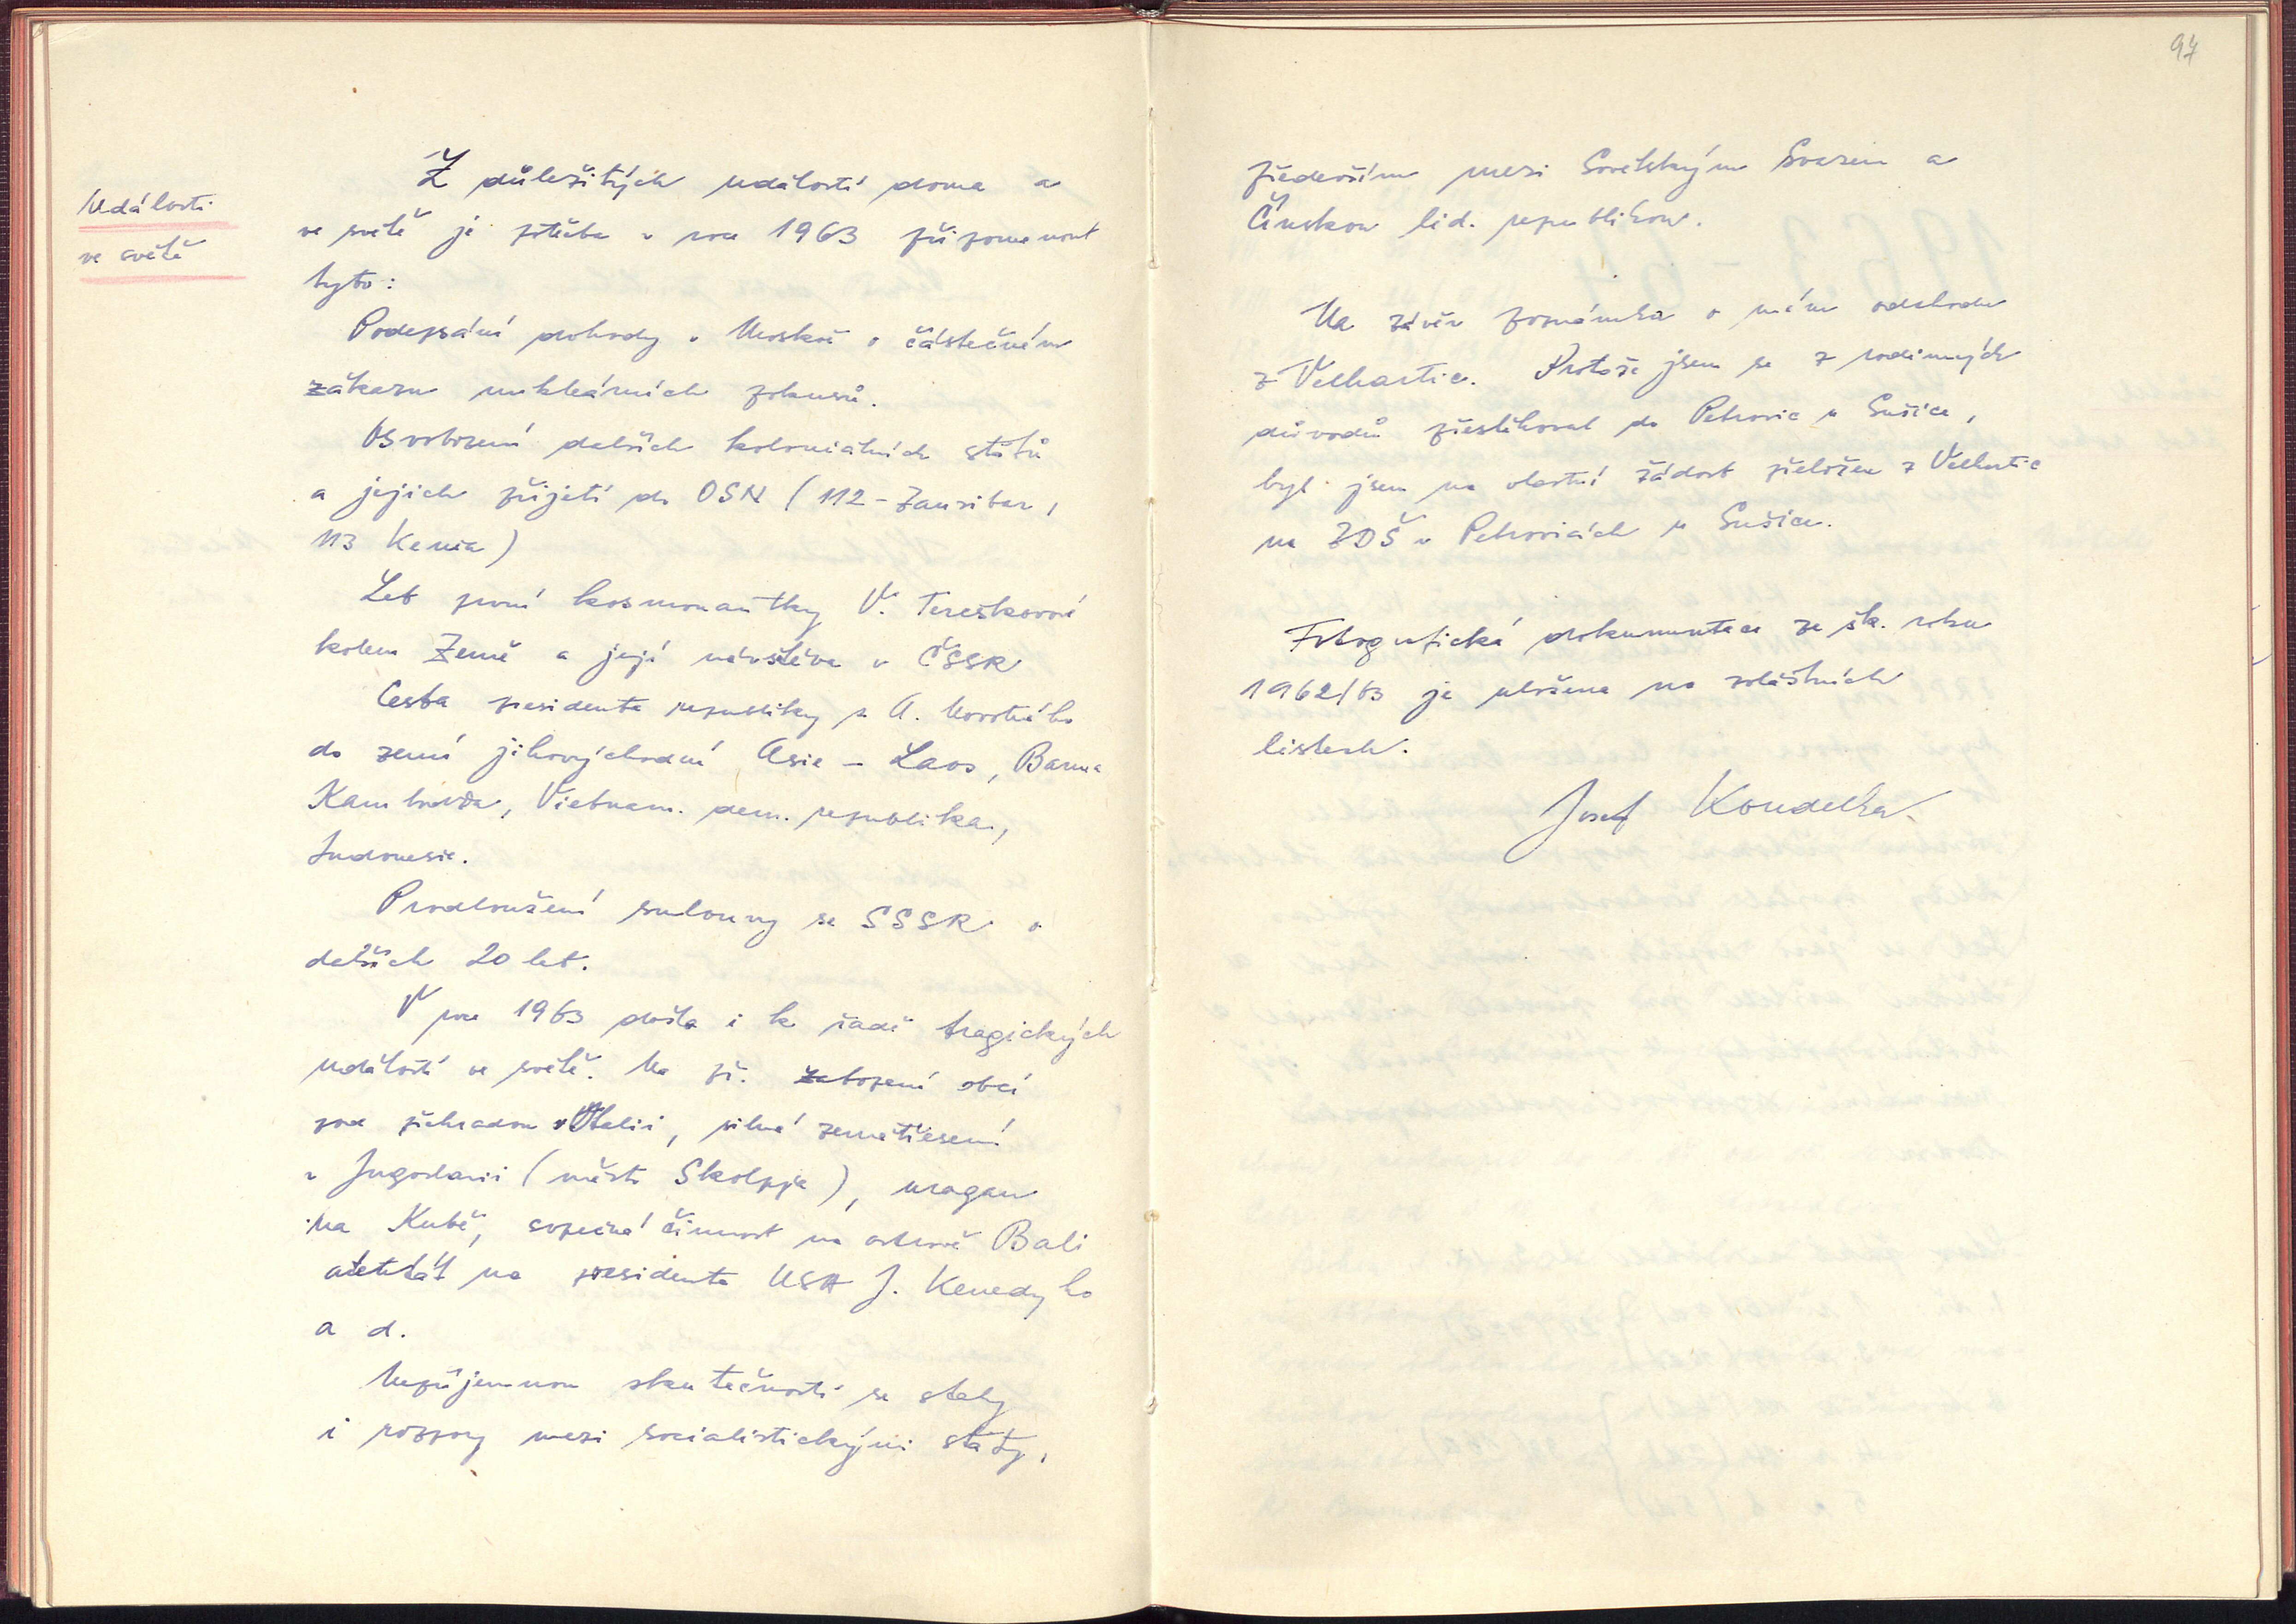 97
Události
ve světě
Z důležitých událostí doma a
ve světě je potřeba v roce 1963 připomenout
tyto:
Podepsání dohody v Moskvě o částečném
zákazu nukleárních pokusů.
Osvobození dalších koloniálních států
a jejich přijetí do OSN (112 - Zanzibar,
113 Kenia)
Let první kosmonautky V. Těreškovové
kolem Země a její návštěva v ČSSR
Cesta presidenta republiky s. A. Novotného
do zemí jihovýchodní Asie - Laos, Barma
Kambodža, Vietnam. dem. republika,
Indonesie.
Prodloužení smlouvy se SSSR o
dalších 20 let.
V roce 1963 došlo i k řadě tragických
událostí ve světě. Na př. zatopení obcí
pod přehradou v Italii, silné zemětřesení
v Jugoslavii (město Skolpje), uragan
na Kubě, sopečná činnost na ostrově Bali
atetát na presidenta USA J. Kenedyho
a d.
Nepříjemnou skutečností se staly
i rozpory mezi socialistickými státy,
především mezi Sovětským Svazem a
Čínskou lid. republikou.
Na závěr poznámka o mém odchodu
z Velhartic. Protože jsem se z rodinných
důvodů přestěhoval do Petrovic u Sušice,
byl jsem na vlastní žádost přeložen z Velhartic
na ZDŠ v Petrovicích u Sušice.
Fotografická dokumentace ze šk. roku
1962/63 je uložena na zvláštních
listech.
Josef Koudelka